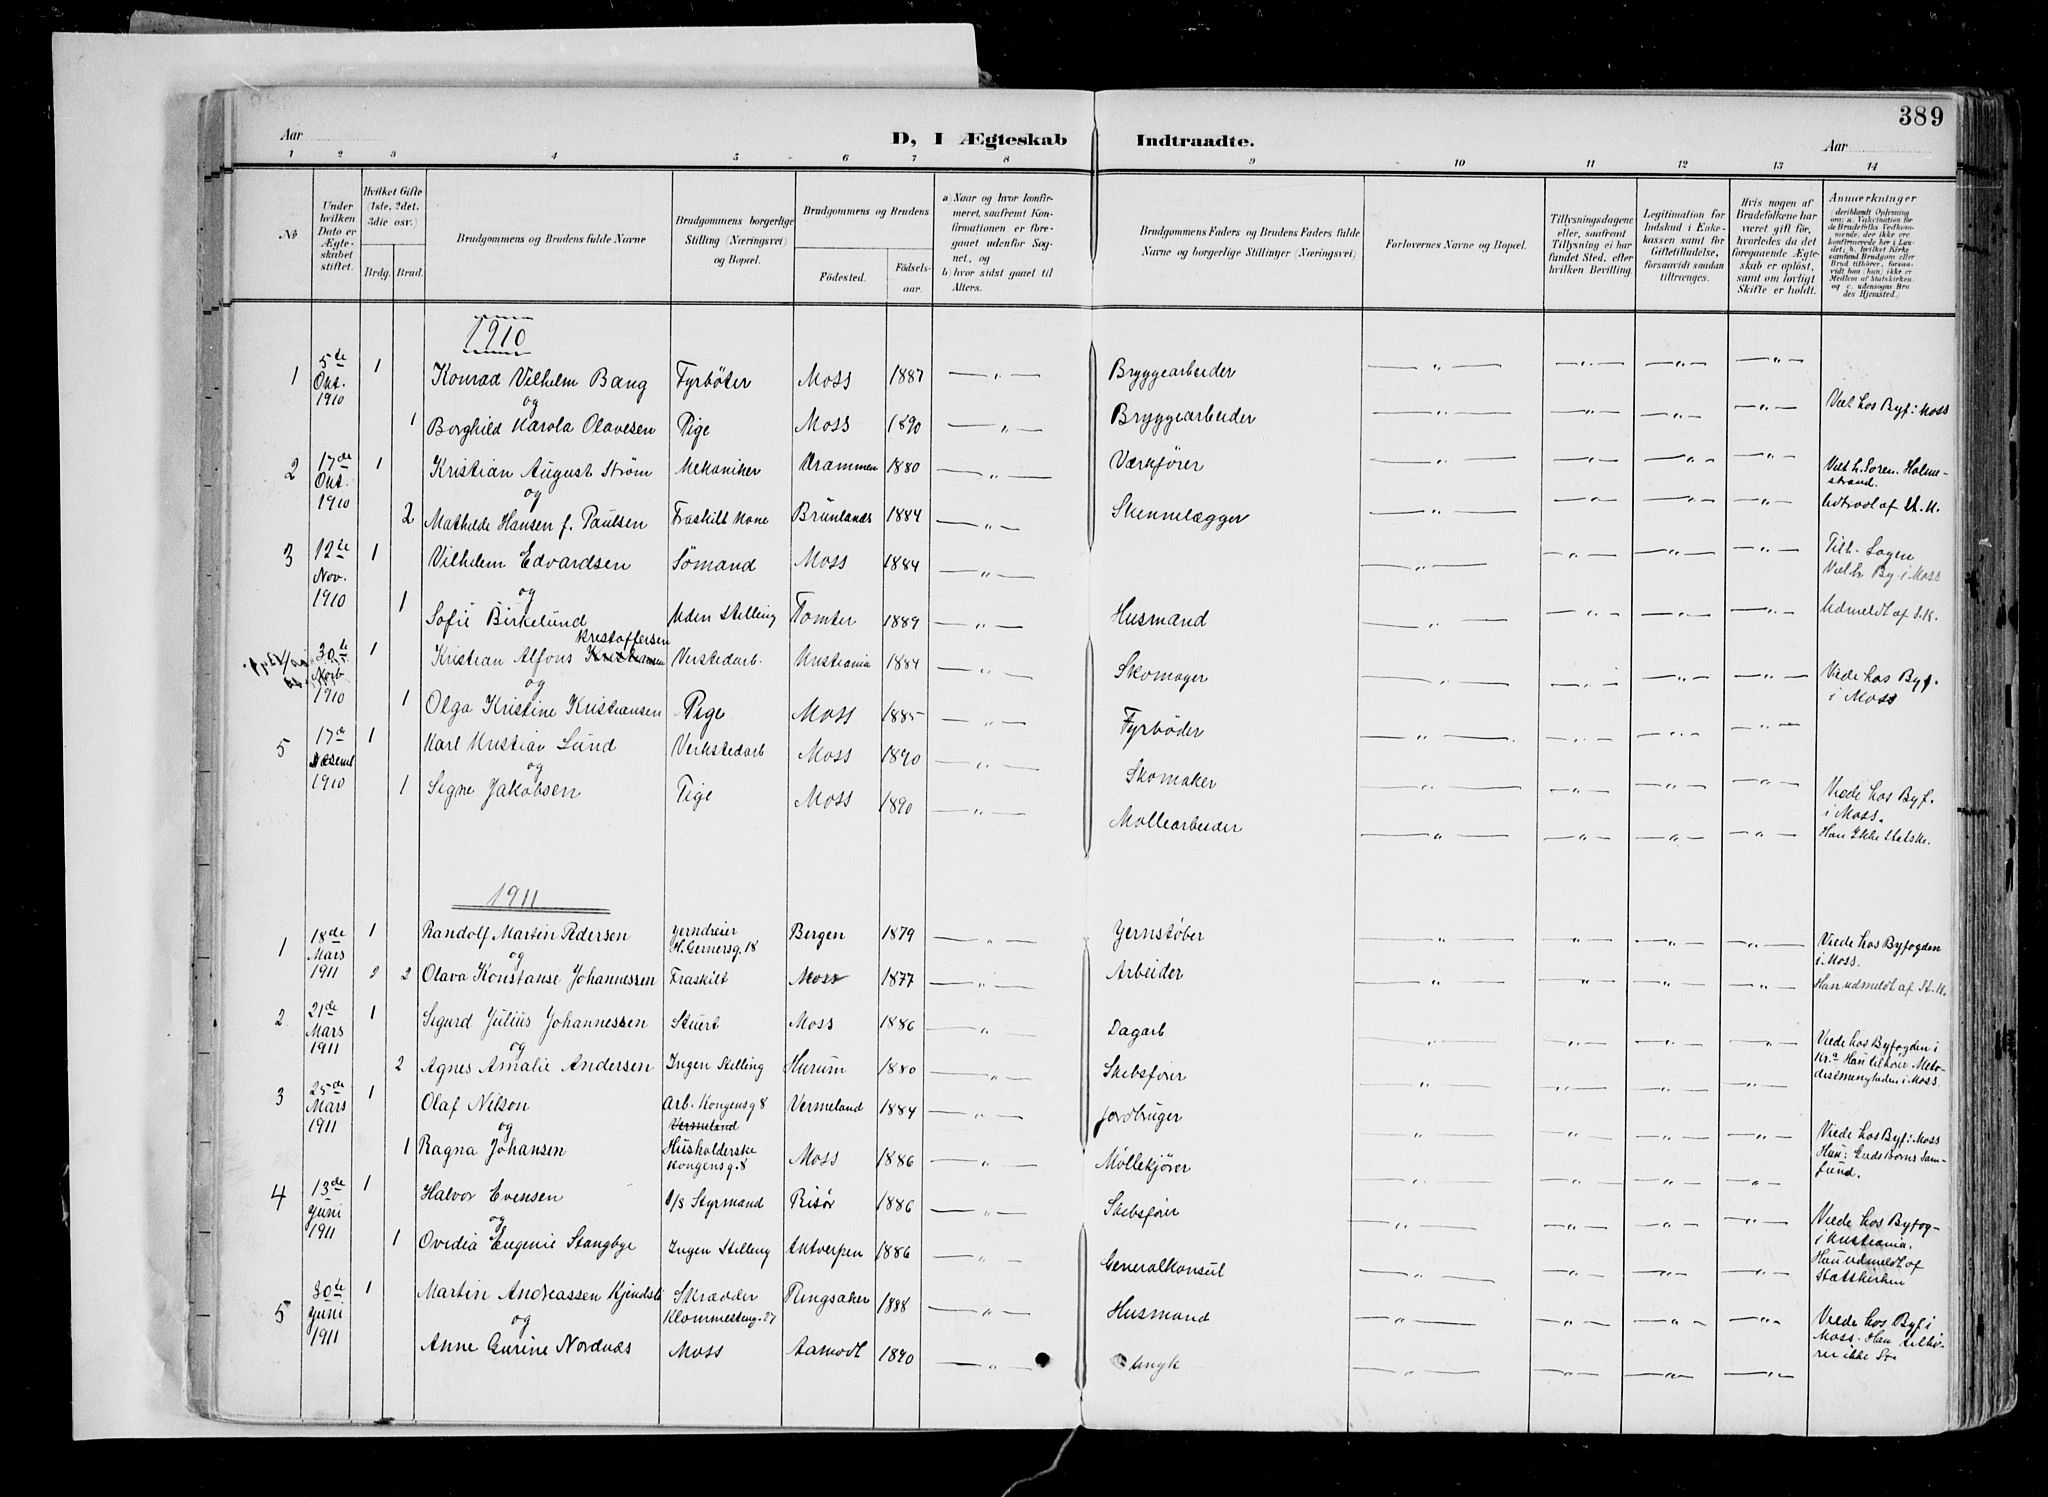 389
Aar D, I Ægteskab Indtraadte. Aar
1 2 3 4 5 6 7 8 9 10 11 12 13 14
No
Under hvilken Dato er Ægteskabet stiftet.
Hvilket Gifte (1ste, 2det, 3die osv.)
Brdg. Brud.
Brudgommens og Brudens fulde Navne
Brudgommens borgerlige Stilling (Næringsvei) og Bopæl.
Brudgommens og Brudens
Fødested. Fødselsaar.
a Naar og hvor konfirmeret, saafremt Konfirmationen er foregaaet udenfor Sognet, og
b) hvor sidst gaaet til Alters.
Brudgommens Faders og Brudens Faders fulde Navne og borgerlige Stillinger (Næringsvei)
Forlovernes Navne og Bopæl.
Tillysningsdagene eller, saafremt Tillysning ei har fundet Sted, efter hvilken Bevilling.
Legitimation for Indskud i Enkekassen samt for Giftetilladelse, forsaavidt saadan tiltrænges.
Hvis nogen af Brudefolkene har været gift før, hvorledes da det foregaaende Ægteskab er opløst, samt om lovligt Skifte er holdt.
Anmerkninger
1910
1 5te Okt. 1910 1 Konrad Vilhelm Bang Fyrbøter Moss 1887 Bryggearbeider
og
1 Borghild Karola Olavesen Pige Moss 1890 Bryggearbeider Viet hos Byf. i Moss
2 17de Okt. 1910 1 Kristian August Strøm Mekaniker Drammen 1880 Værkfører
og
2 Mathilde Hansen f. Paulsen Fraskilt Kone Brunlanäs 1884 Stennelægger
3 12te Nov. 1910 1 Vilhelm Edvardsen Sømand Moss 1884
og Viet h. By. i Moss
1 Sofie Birkelund Uden Stilling Tomter 1889 Husmand Udmeldt af S.K.
Kristoffersen
30te Novb 1910 1 Kristian Alfons Kristiansen Verstedarb. Kristiania 1884 Skomager
og
1 Olga Kristine Kristiansen Pige Moss 1885 Fyrbøder Viede hos Byf. i Moss
5 17de 1910 1 Karl Kristian Lund Verkstedarb Moss 1890 Skomaker
og
1 Signe Jakobsen Pige Moss 1890 Møllearbeider Viede hos Byf. i Moss.
Han Ikke Statske.
1911
1 18de Mars 1911 1 Randolf Martin Pedersen Jerndreier H. Gernersg. 18 Bergen 1879 Jernstøber Viede hos Byfogden i Moss.
og
2 2 Olava Konstanse Johannessen Fraskilt Moss 1877 Arbeider Han udmeldt af St. K.
2 21de Mars 1911 1 Sigurd Julius Johannessen Stuert Moss 1886 Dagarb
og
2 Agnes Amalie Andersen Ingen Stilling Hurum 1880 Skibsfører Viede hos Byfogden i Kr.a Han tilhører Metodistmenigheden i Moss.
3 25de Mars 1911 1 Olaf Nilson Arb. Kongensg 8 Vermeland Vermeland 1884 Jordbruger
og
1 Ragna Johansen Husholderske Kongensg. 8 Moss 1886 Møllekjører Viede hos Byf: Moss
Han: Guds Børns Samfund.
4 13de Juni 1911 1 Halvor Evensen Styrmand Risør 1886 Skibsfører Viede hos Byfog- i Kristiania.
og
1 Ovidia Eugenie Stangbye Ingen Stilling Antverpen 1886 Generalkonsul Han udmeldt af Statskirken
5 30te Juni 1911 1 Martin Andreassen Skrædder Ringsaker 1888 Husmand
og
Anne Gurine Nordnæs Moss Aamodt 1890 Viede hos Byf i Moss. Han tilhører ikke St.